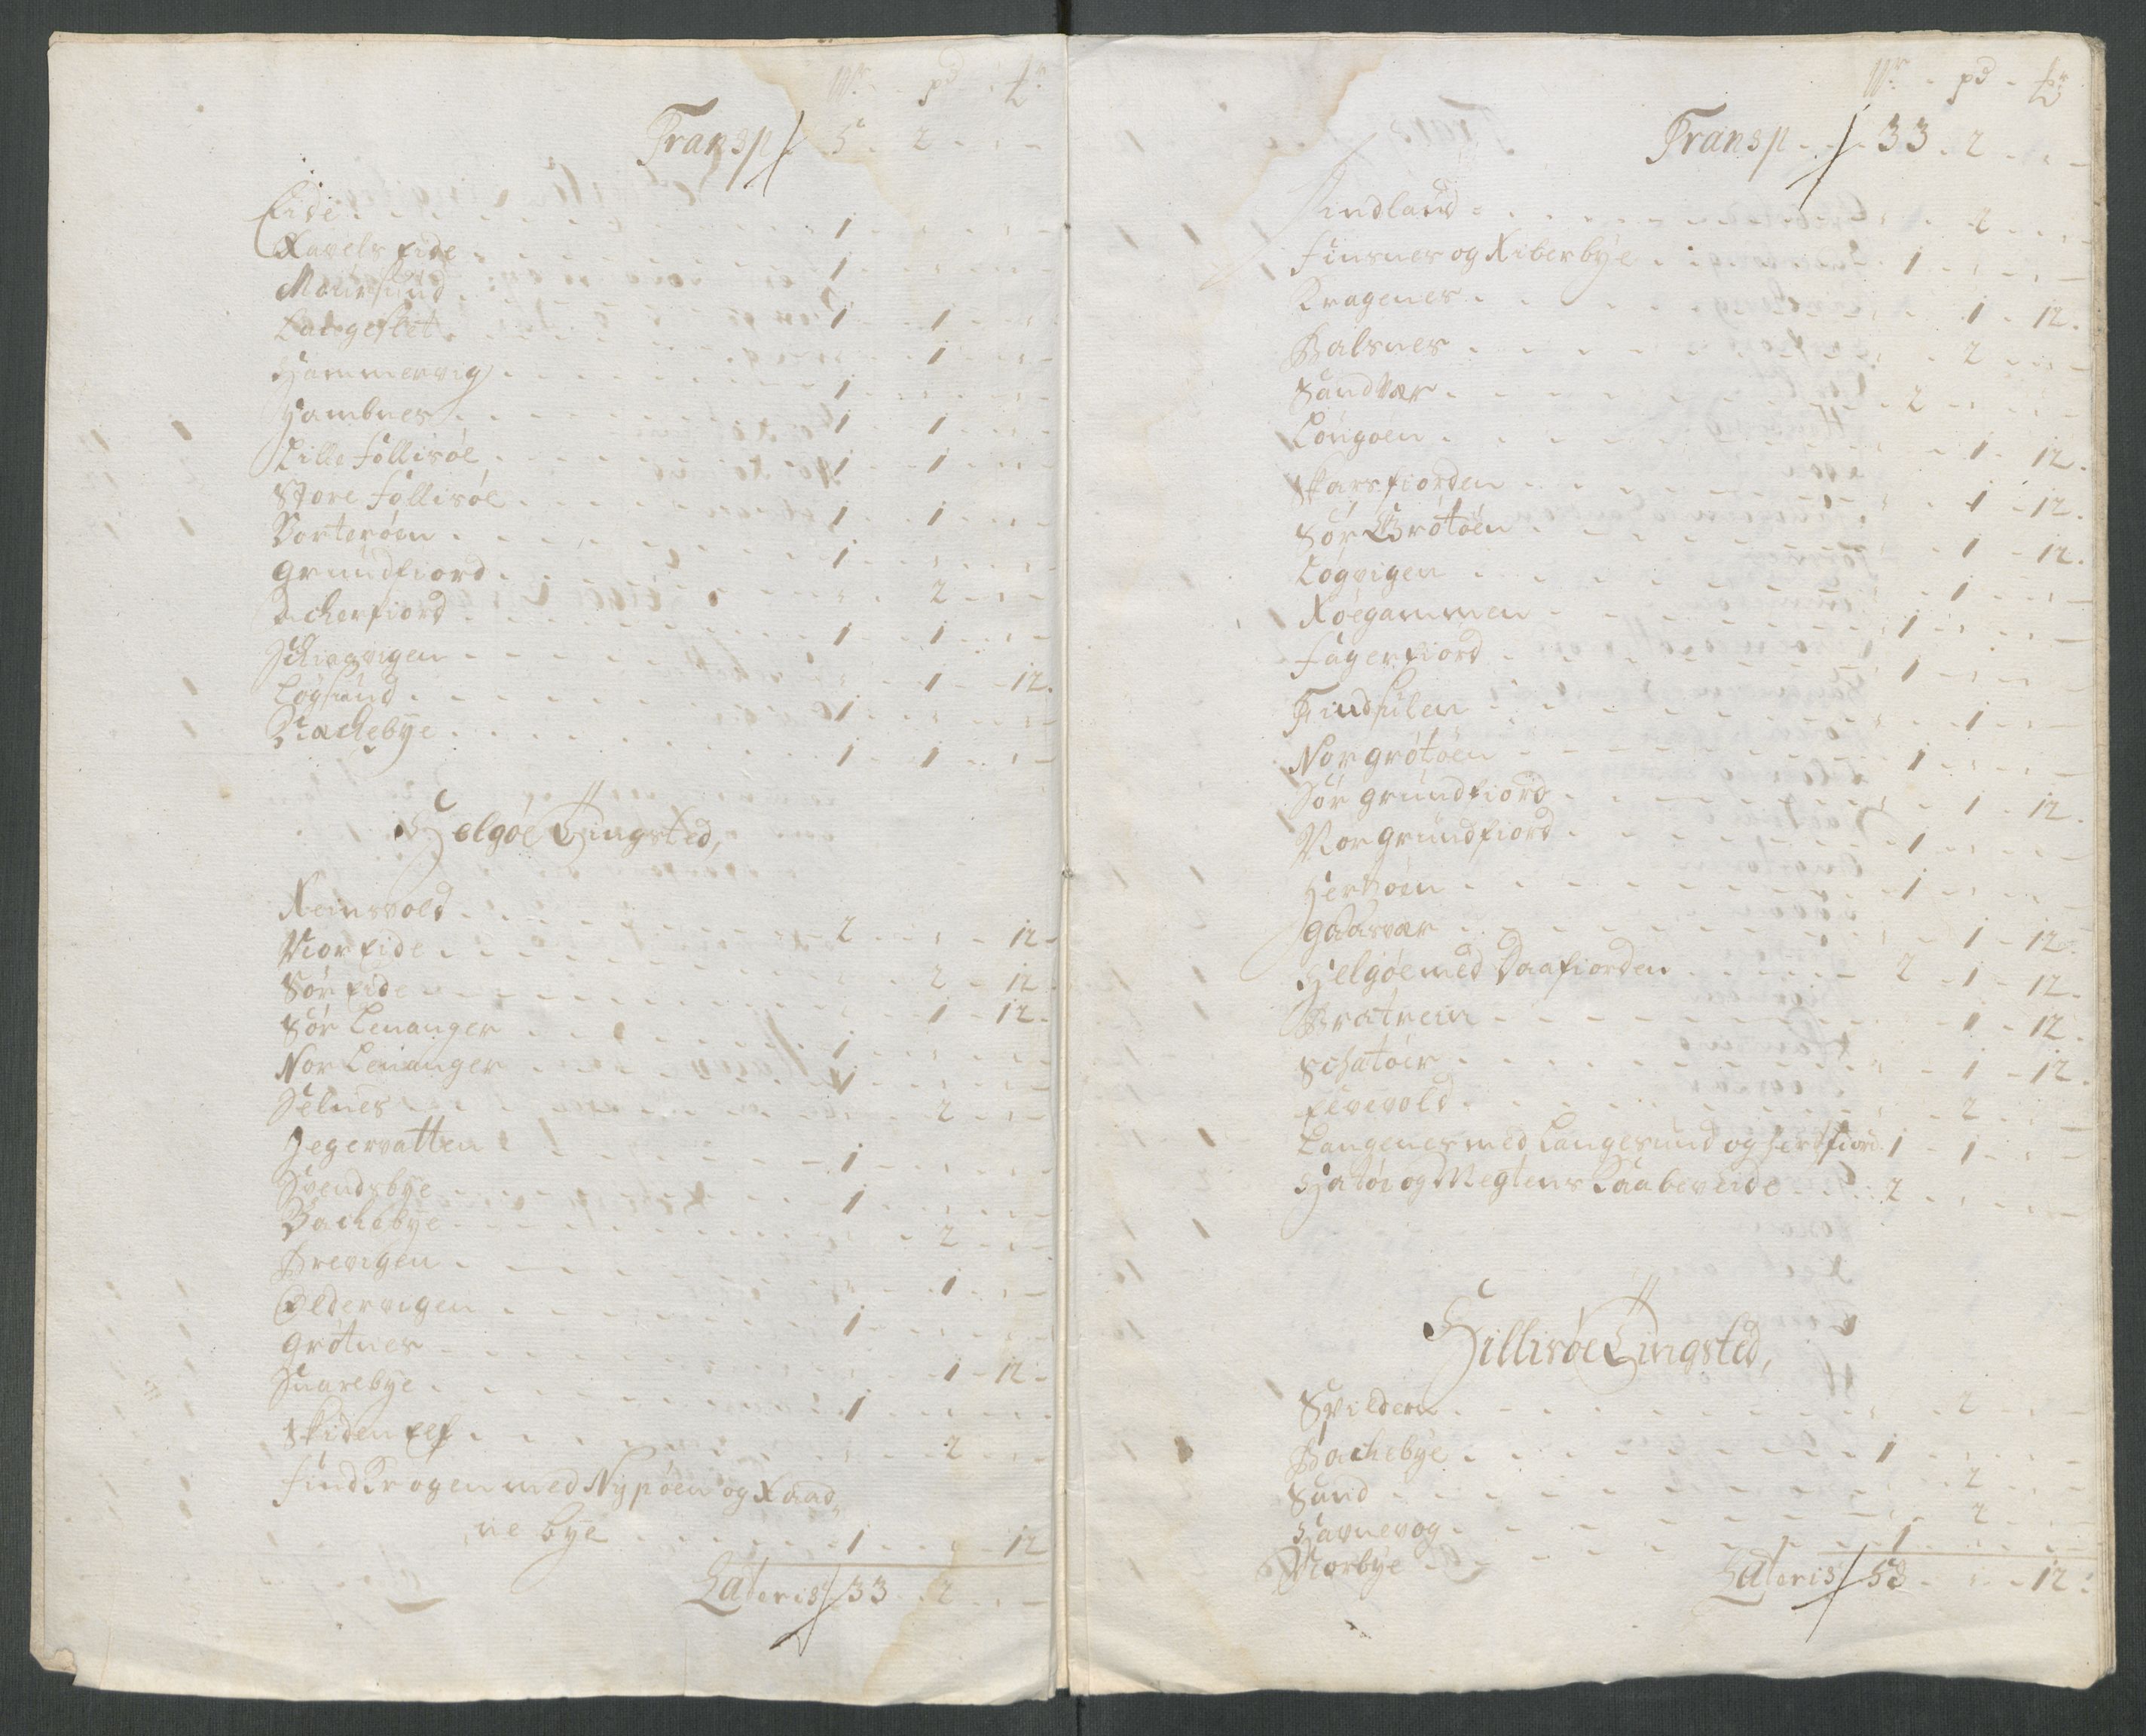 pd
Transp 5 2
Eide 1
Ravels Eide 1
Maursund 1 1
Langeslet 1
Hammervig 1
Hambnes 1 1
Lille follisøe 1 1
Store follisøe 1 1
Vorterøen 1
Grundfiord 2
Acherfiord 1 1
1 12
Løgsund 1
Bachebye 1 1
Helgøe Tingsted,
Reinsvold 2 12
Nor Eide 2 12
Sør Eide 1 12
Sør Lenanger 1
Nor Lenanger 1
Selnes 2
Jegervatten 1
Svendsbye 1
Bachebye 2
Brevigen 1
Oldervigen 1
Grøtnes 1 12
Snarebye 1
Skiden Elf 2
Find Krogen med Nypøen og Raad
ne bye 1 12
Lateris 33 2
pd
Transp 33 2
Lindland 2
Finsnes og Riberbye 1
Kragenes 1 12
Balsnes 2
Sandvær 2
Løngøen 1 12
Skarsfiorden 1 12
Sør Grøtøen 1 12
Løgvigen 1
Røegammen 1
Fagerfiord 1
Findhulen 1
Nor grøtøen 1
Sør grundfiord 1 12
Nor grundfiord 1
Hersøen 1
Gaasvær 1 12
Helgøe med Daafiorden 2 1 12
Bratrein 1 12
Schatøer 1 12
Elvevold 2
Langenes med Langesund og herfiord 1 1
Hatøe og Megtens Laabeveide 2
Hillisøe Tingsted,
Svildern 2
Bachebye 1
Sund 2
Havnevog 2
Norbye 1
Lateris 53 12